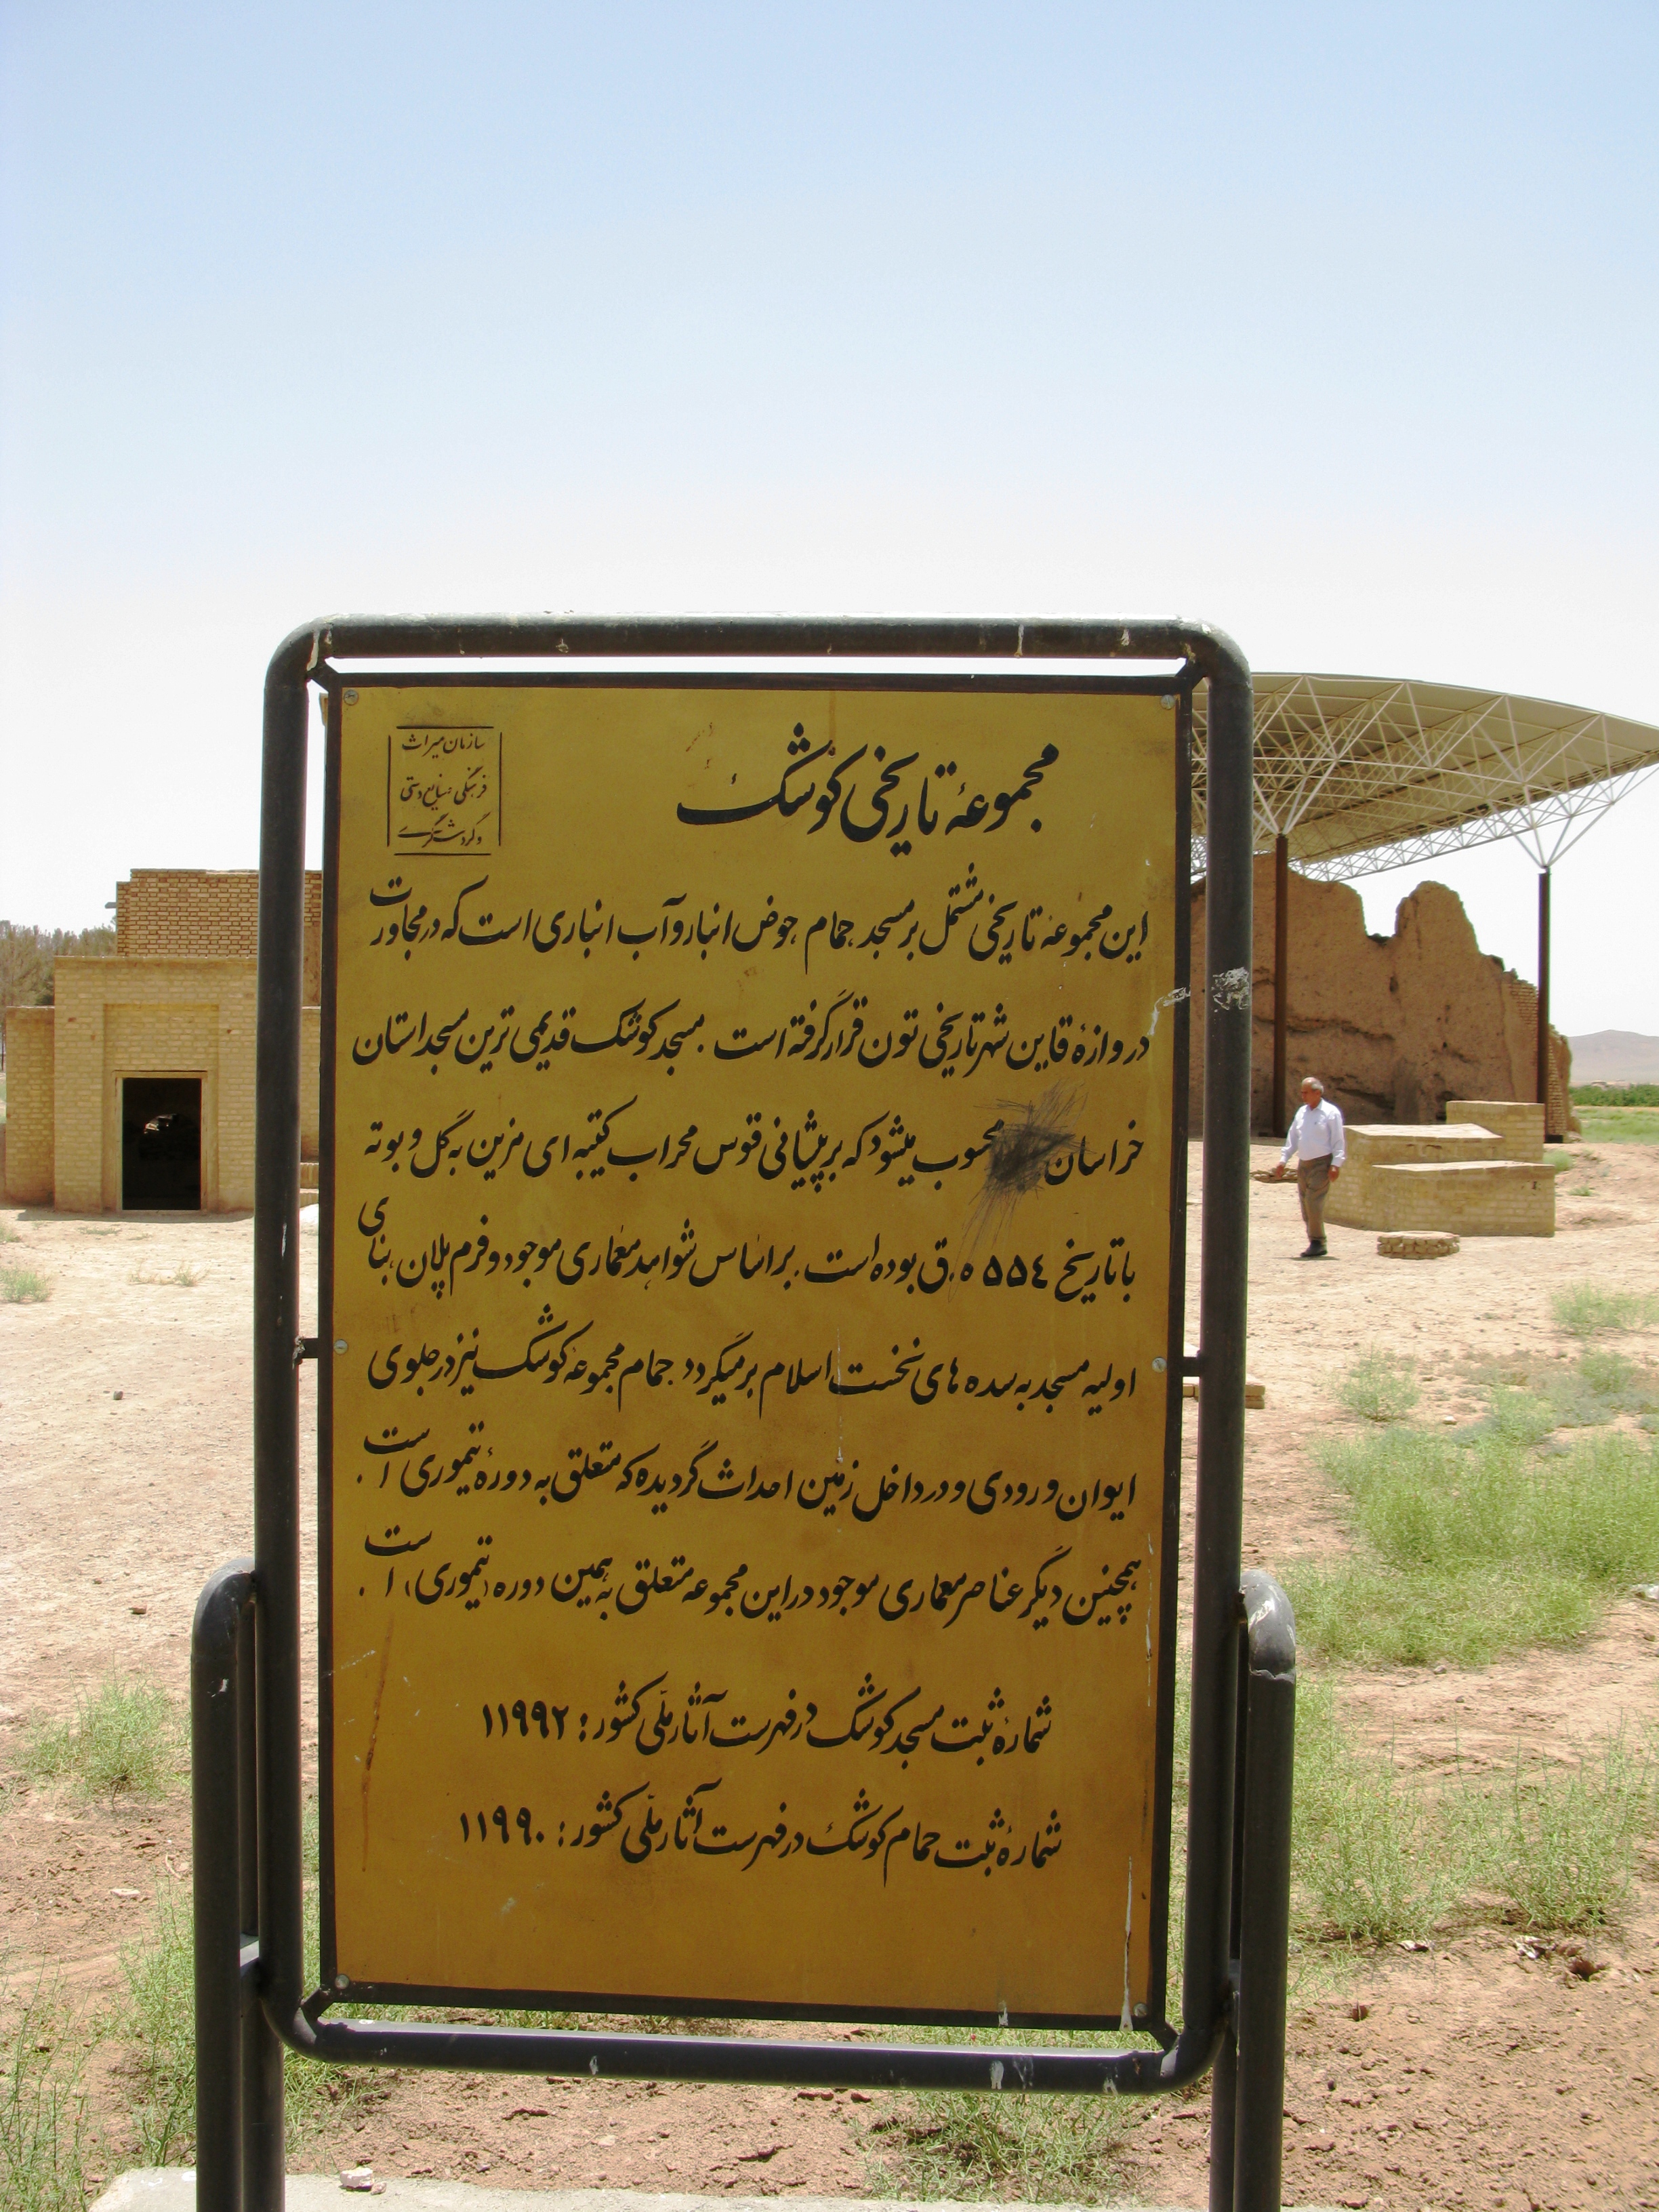 مجموعهٔ تاریخی کوشک
سازمان میراث
فرهنگی صنایع دستی
و گردشگری
این مجموعهٔ تاریخی مشتمل بر مسجد، حمام، حوض انبار و آب انباری است که در مجاورت
دروازهٔ قاین شهر تاریخی تون قرار گرفته است. مسجد کوشک قدیمی ترین مسجد استان
خراسان محسوب میشود که بر پیشانی قوس محراب کتیبه ای مزین به گل و بوته
با تاریخ ۵۵٤ ه.ق بوده است. بر اساس شواهد معماری موجود و فرم پلان، بنای
اولیه مسجد به سده های نخست اسلام بر میگردد. حمام مجموعهٔ کوشک نیز در جلوی
ایوان ورودی و در داخل زمین احداث گردیده که متعلق به دورهٔ تیموری است.
همچنین دیگر عناصر معماری موجود در این مجموعه متعلق به همین دوره (تیموری) است.
شمارهٔ ثبت مسجد کوشک در فهرست آثار ملّی کشور: ۱۱۹۹۲
شمارهٔ ثبت حمام کوشک در فهرست آثار ملّی کشور: ۱۱۹۹۰